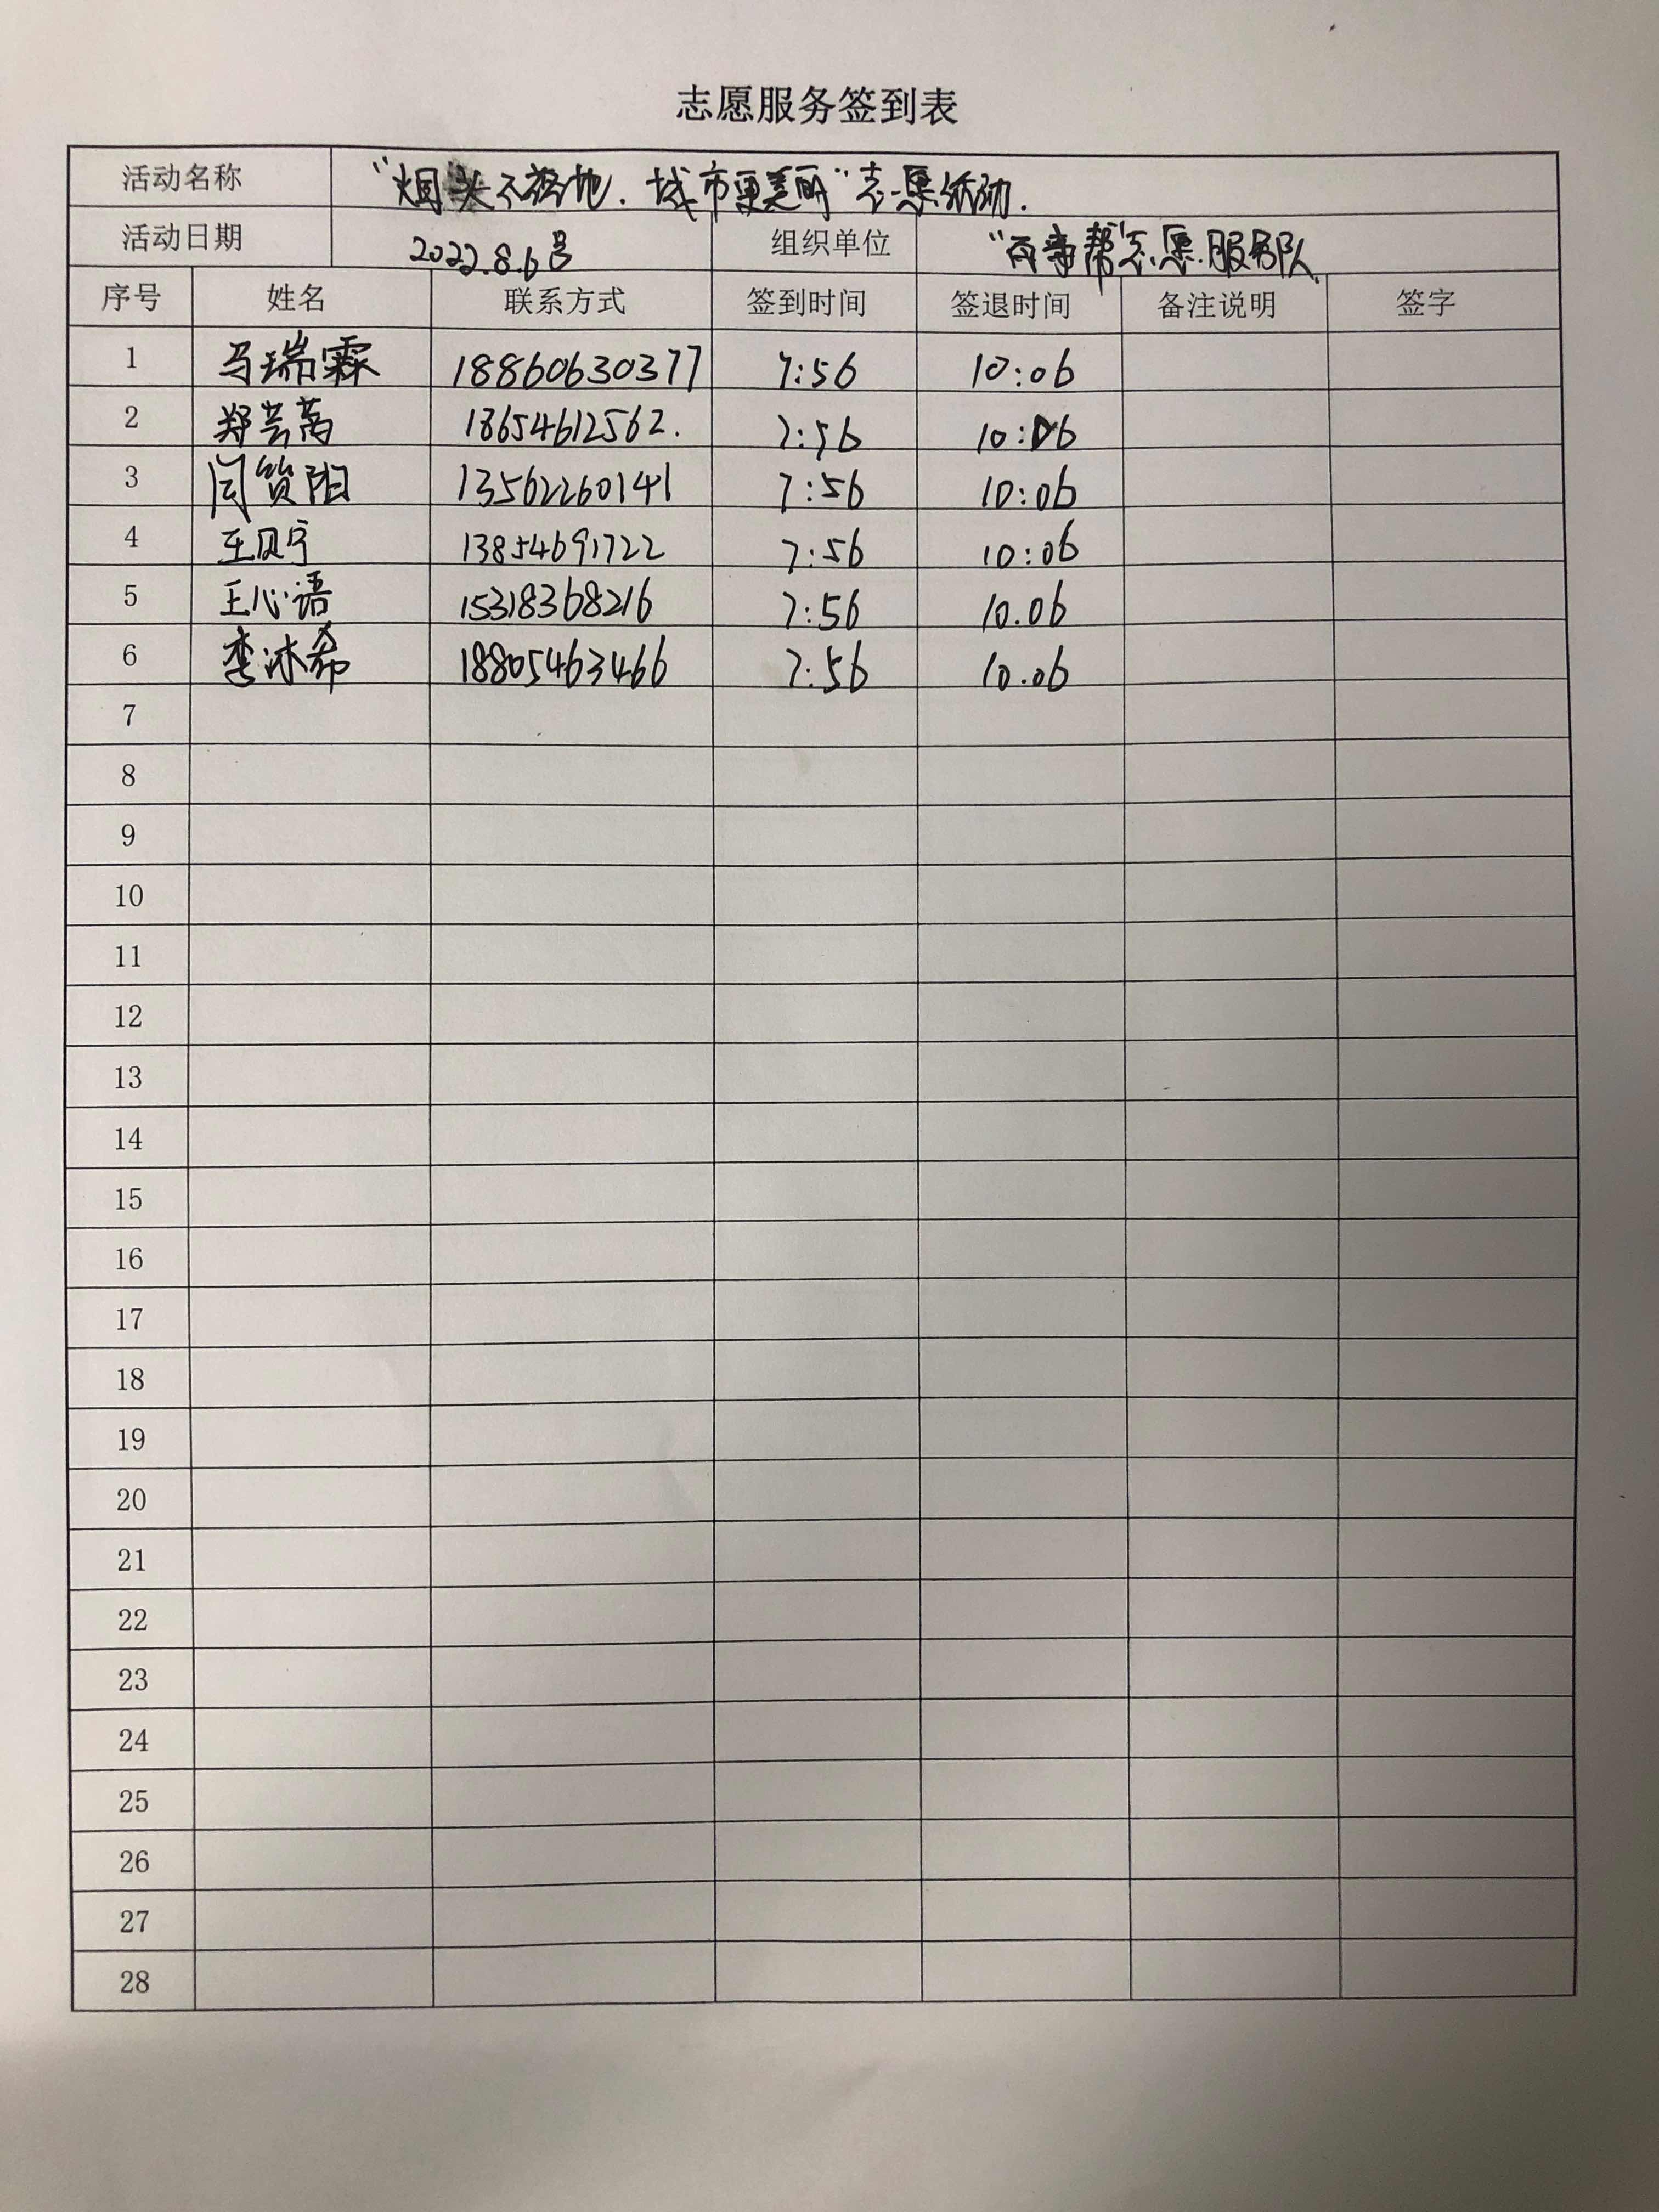 志愿服务签到表
活动名称 “烟头不落地.城市更美丽”志愿活动.
活动日期 2022.8.6号 组织单位 “百事帮”志愿服务队
序号 姓名 联系方式 签到时间 签退时间 备注说明 签字
1 马瑞霖 18860630377 7:56 10:06
2 郑芸 18654612562. 7:56 10:06
3 闫贺阳 13562260141 7:56 10:06
4 王贝宁 13854691722 7:56 10:06
5 王心语 15318368216 7:56 10.06
6 李沐希 18805463466 7:56 10.06
7
8
9
10
11
12
13
14
15
16
17
18
19
20
21
22
23
24
25
26
27
28